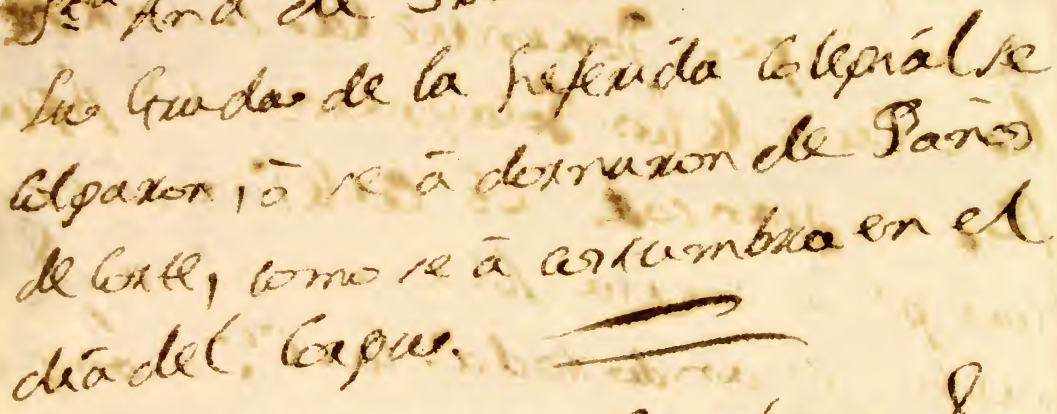 Sta Ana de
Las Gradas de la referida Colegiál se
colgaron, ó se á dornaron de Paños
de Corte, como se á costumbra en el
día del Corpus.